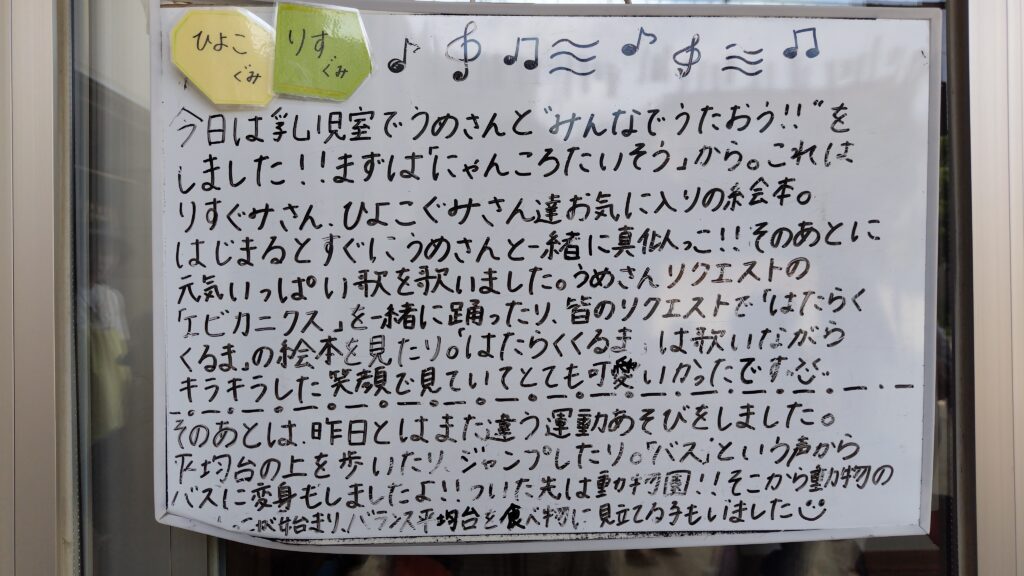 ひよこ
ぐみ
りす
ぐみ
今日は乳児室でうめさんと"みんなでうたおう!!"を
しました!!まずは「にゃんころたいそう」から。これは
りすぐみさん、ひよこぐみさん達お気に入りの絵本。
はじまるとすぐにうめさんと一緒に真似っこ!!そのあとに
元気いっぱい歌を歌いました。うめさんリクエストの
「エビカニクス」を一緒に踊ったり、皆のリクエストで「はたらく
くるま」の絵本を見たり。「はたらくくるま」は歌いながら
キラキラした笑顔で見ていてとても可愛いかったです
そのあとは、昨日とはまた違う運動あそびをしました。
平均台の上を歩いたり、ジャンプしたり。「バス」という声から
バスに変身もしましたよ!!ついた先は動物園!!そこから動物の
が始まり、バランス平均台を食べ物に見立てる子もいました